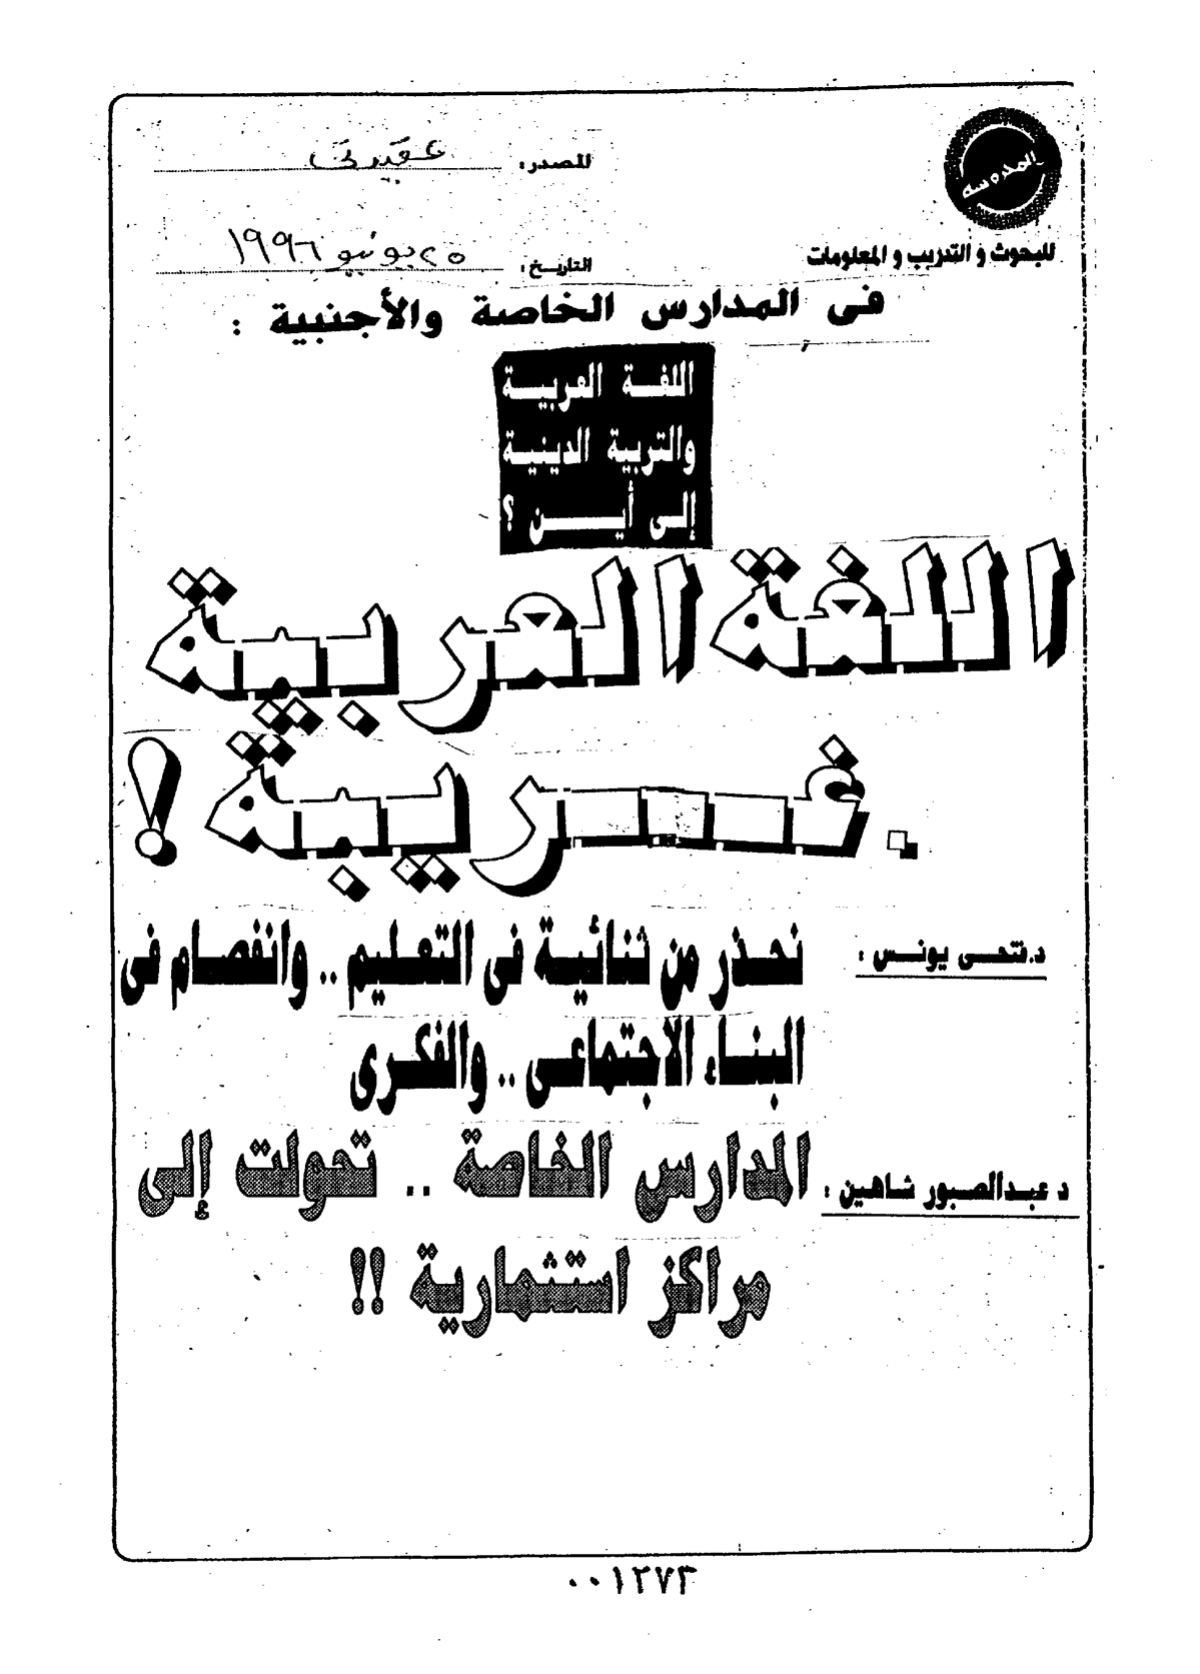 المدروسه
للبحوث و التدريب و المعلومات
المصدر: عقيدتى
التاريخ: ٢٥ يونيو ١٩٩٦
فى المدارس الخاصة والأجنبية :
اللغة العربية
والتربية الدينية
إلى أين ؟
اللغة العربية
.غريبة !
د.فتحى يونس :
نحذر من ثنائية فى التعليم .. وانفصام فى
البناء الاجتماعى .. والفكرى
د عبدالصبور شاهين :
المدارس الخاصة .. تحولت إلى
مراكز استثمارية !!
٠٠١٢٧٣